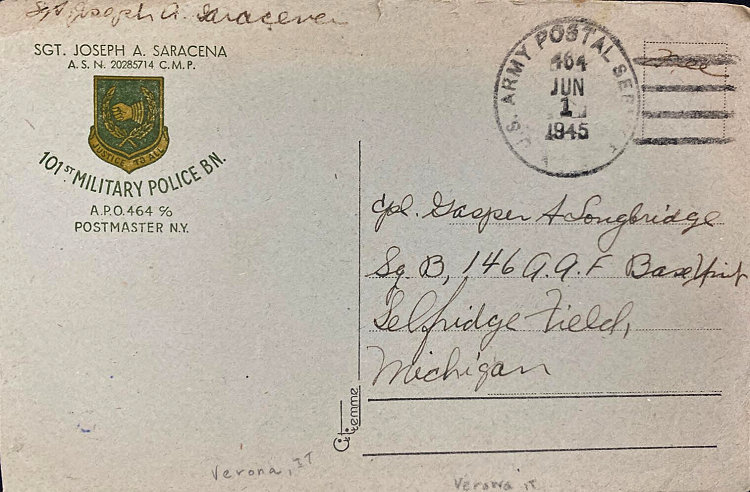 Sgt Joseph A. Saracena
SGT. JOSEPH A. SARACENA
A. S. N. 20285714 C. M. P.
JUSTICE TO ALL
101ST MILITARY POLICE BN.
A. P. O. 464 c/o
POSTMASTER N.Y.
U.S. ARMY POSTAL SERVICE
464
JUN
1
1945
Free
Cpl. Gasper A Longbridge
Sq B, 146 A.A.F Base Unit
Selfridge Field,
Michigan
Citemme
Verona, IT
Verona IT